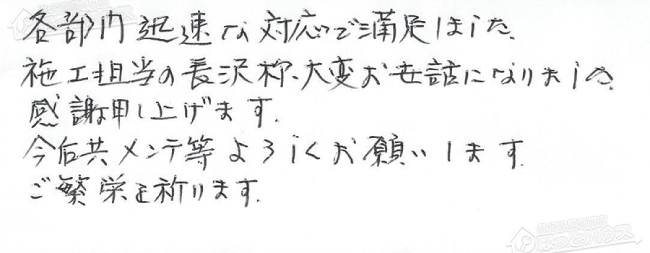 各部門迅速な対応で満足しました。
施工担当の長沢様、大変お世話になりました。
感謝申し上げます。
今后共メンテ等よろしくお願いします。
ご繁栄を祈ります。